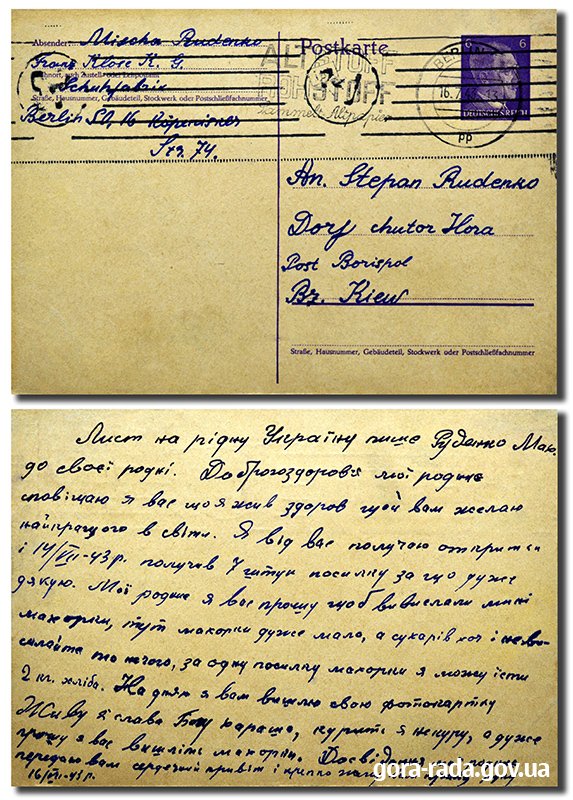 Absender: Mischa Rudenko
Franz Klose K. G.
Wohnort, auch Zustell- oder Leitpostamt
Schuhfabrik
Straße, Hausnummer, Gebäudeteil, Stockwerk oder Postschließfachnummer
Berlin SO, 16 Köpenicker
Str. 74.
Postkarte
ALTSTOFF
ROHSTOFF
sammelt Altpapier
BERLIN
16.7.
pp
6 6
DEUTSCHES REICH
An. Stepan Rudenko
Dorf chutor Hora
Post Borispol
Bz. Kiew
Straße, Hausnummer, Gebäudeteil, Stockwerk oder Postschließfachnummer
Лист на рідну Україну пише Руденко Мих.
до своєї родні. Доброго здоровя мої родне
сповіщаю я вас що я жив здоров чого й вам желаю
найкращого в світи. Я від вас получаю открытки
і 14/VII-43 р. получив 7 штук посилку за що дуже
дякую. Мої родне я вас прошу щоб ви вислали мині
махорки, тут махорки дуже мало, а сухарів хоч і не ви-
силайте то нічого, за одну посилку махорки я можу їсти
2 кг. хліба. На днях я вам вишлю свою фотокартку
Живу я слава Богу хараше, курить я не курю, а дуже
прошу я вас вишліть махорки. Досвідання
передаю вам сердечний привіт і кріпко
16/VII-43 р.
gora-rada.gov.ua